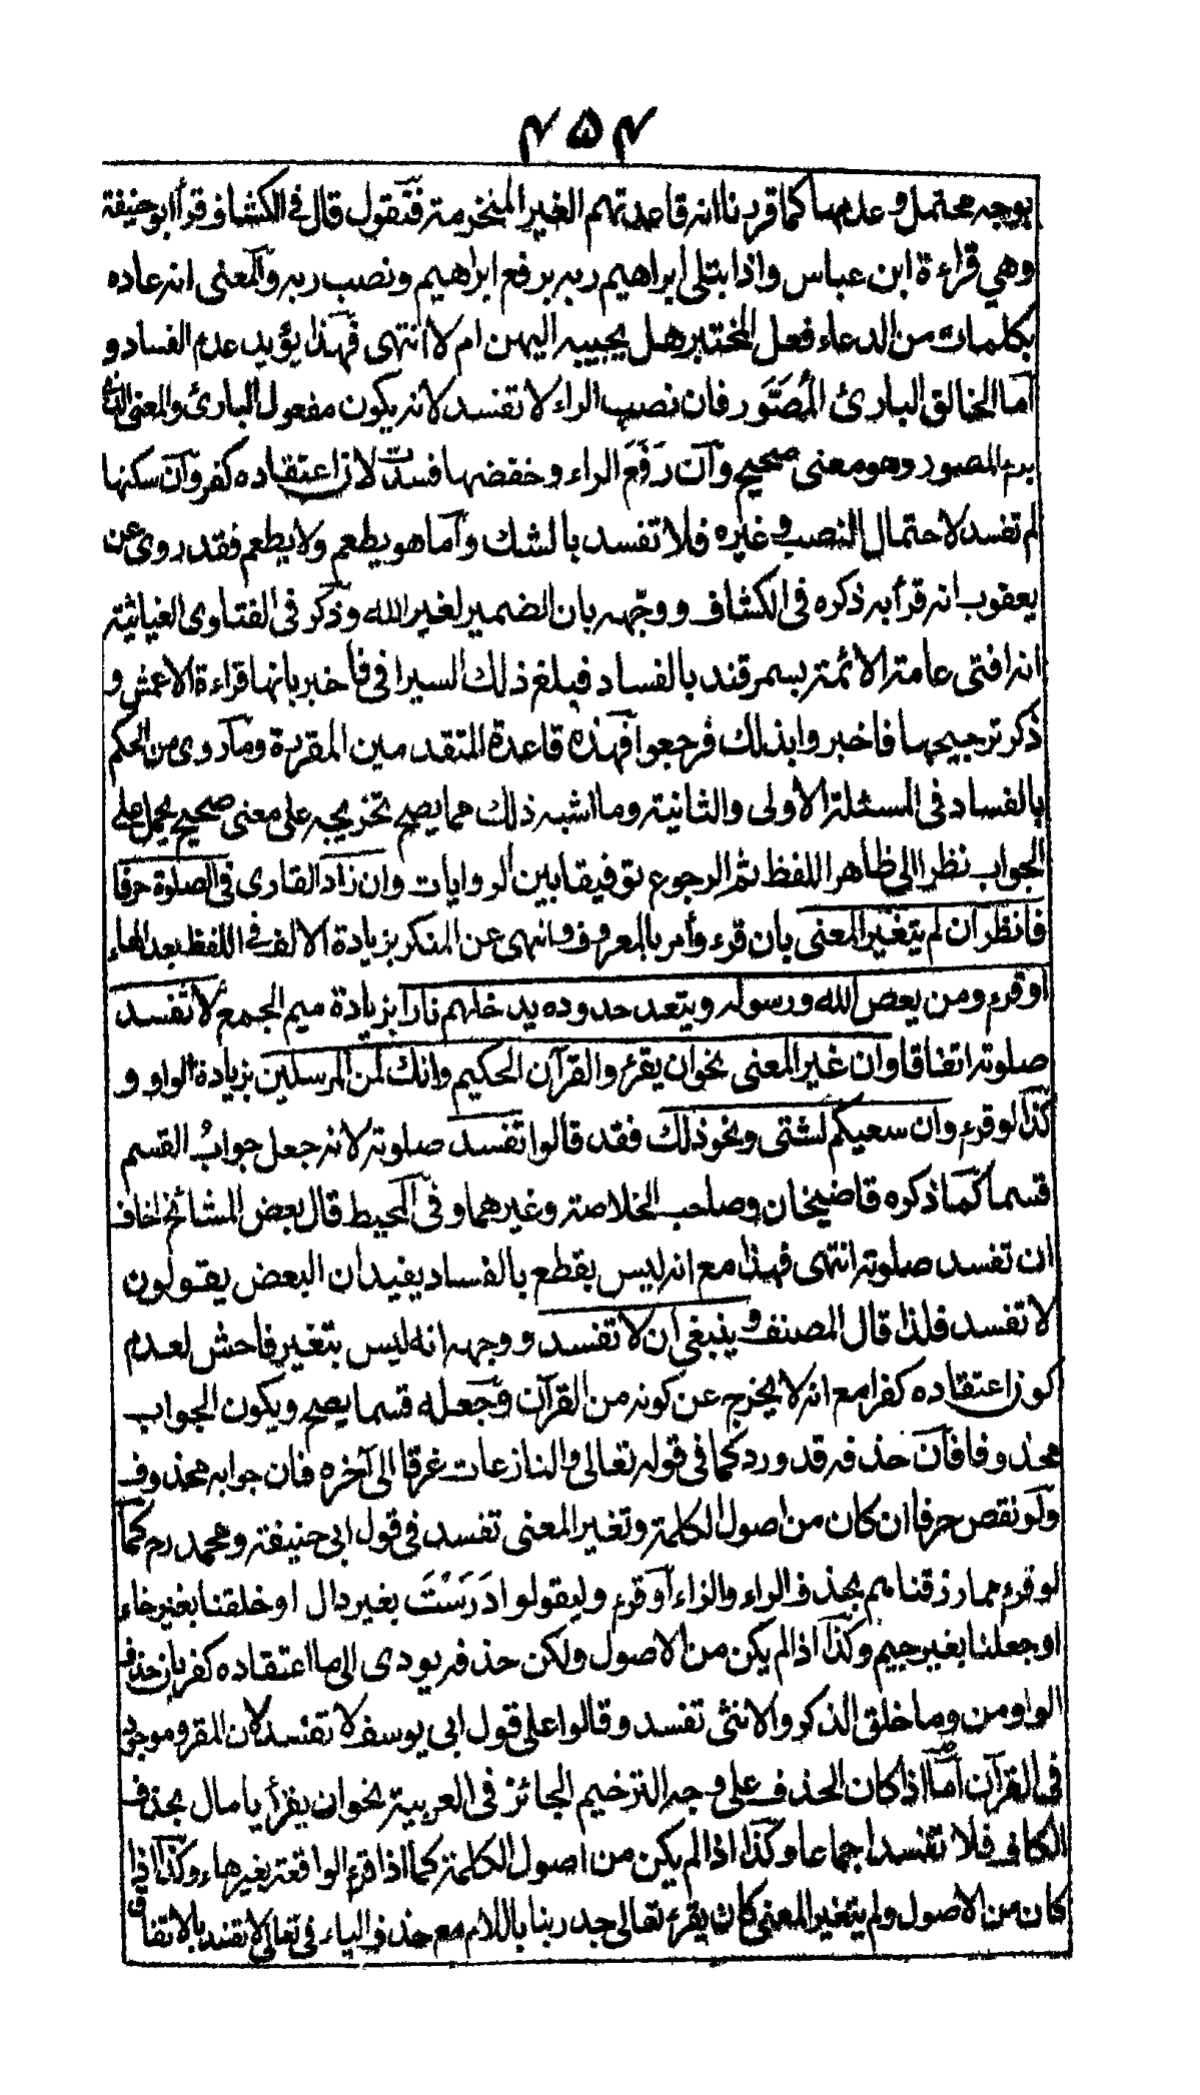 ٤٥٤
بوجه محتمل وعدمها كما قررنا انه قاعدتهم الغير المنخرمة فنقول قال في الكشاف وقرأ ابو حنيفة
وهي قراءة ابن عباس واذا ابتلى ابراهيم ربه برفع ابراهيم ونصب ربه والمعنى انه عاده
بكلمات من الدعاء فعل المختبر هل يجيبه اليهن ام لا انتهى فهذا يؤيد عدم الفساد و
اما الخالق البارئ المُصَوَّر فان نصب الراء لا تفسد لانه يكون مفعول البارئ والمعنى الذي
برء المصور وهو معنى صحيح وان رَفَعَ الراء وخفضها فسدت لان اعتقاده كفر وان سكنها
لم تفسد لاحتمال النصب وغيره فلا تفسد بالشك واما هو يطعم ولا يطعم فقد روى عن
يعقوب انه قرأ به ذكره في الكشاف ووجّهه بان الضمير لغير الله وذكر في الفتاوى الغياثية
انه افتى عامة الائمة بسمرقند بالفساد فبلغ ذلك السيرافي فأخبر بانها قراءة الاعمش و
ذكر ترجيحها فاخبروا بذلك فرجعوا فهذه قاعدة المتقدمين المقررة وما روى من الحكم
بالفساد في المسئلة الاولى والثانية وما اشبه ذلك مما يصح تخريجه على معنى صحيح يحمل على
الجواب نظرا الى ظاهر اللفظ ثم الرجوع توفيقا بين الروايات وان زاد القارى في الصلوة حرفا
فانظر ان لم يتغير المعنى بان قرء وأمر بالمعروف وانهى عن المنكر بزيادة الالف في اللفظ بعد الهاء
او قرء ومن يعص الله ورسوله ويتعد حدوده يدخلهم نارا بزيادة ميم الجمع لا تفسد
صلوته اتفاقا وان غير المعنى نحو ان يقرء والقرآن الحكيم وانك لمن المرسلين بزيادة الواو و
كذا لو قرء وان سعيكم لشتى ونحو ذلك فقد قالوا تفسد صلوته لانه جعل جواب القسم
قسما كما ذكره قاضيخان وصاحب الخلاصة وغيرهما وفي المحيط قال بعض المشائخ اخاف
ان تفسد صلوته انتهى فهذا مع انه ليس بقطع بالفساد يفيد ان البعض يقولون
لا تفسد فلذا قال المصنف وينبغي ان لا تفسد ووجهه انه ليس بتغير فاحش لعدم
كون اعتقاده كفرا مع انه لا يخرج عن كونه من القرآن وجعله قسما يصح ويكون الجواب
محذوفا فان حذفه قد ورد كما في قوله تعالى والنازعات غرقا الى آخره فان جوابه محذوف
ولو نقص حرفا ان كان من اصول الكلمة وتغير المعنى تفسد في قول ابى حنيفة ومحمد رح كما
لو قرء مما رزقناهم بحذف الراء والزاء أو قرء وليقولوا دَرَسْتَ بغير دال او خلقنا بغير خاء
او جعلنا بغير جيم وكذا اذا لم يكن من الاصول ولكن حذفه يودى الى ما اعتقاده كفر بان حذف
الواو من وما خلق الذكر والانثى تفسد وقالوا على قول ابى يوسف لا تفسد لان المقرو موجود
في القرآن اما اذا كان الحذف على وجه الترخيم الجائز في العربية نحو ان يقرأ يا مال بحذف
الكاف فلا تفسد اجماعا وكذا اذا لم يكن من اصول الكلمة كما اذا قرء الواقعة بغير هاء وكذا اذا
كان من الاصول ولم يتغير المعنى كان يقرء تعالى جد ربنا باللام مع حذف الياء في تعالى لا تفسد بالاتفاق